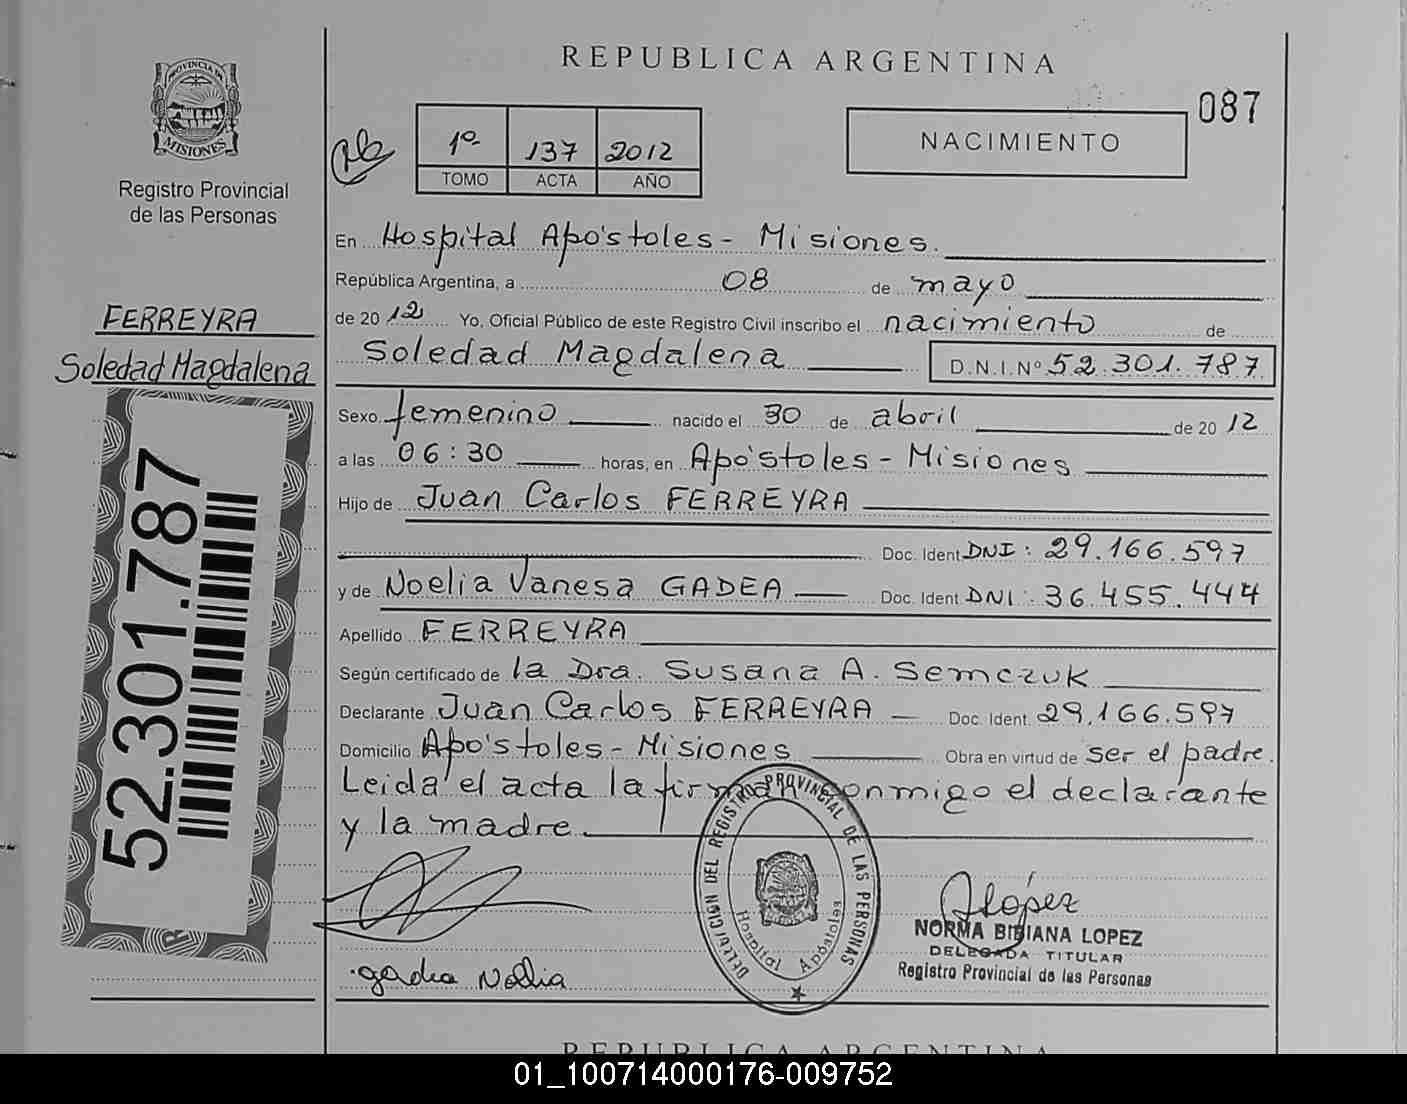 REPUBLICA ARGENTINA
087
PROVINCIA DE
MISIONES
Registro Provincial
de las Personas
1º 137 2012
TOMO ACTA AÑO
NACIMIENTO
En Hospital Apóstoles - Misiones.
República Argentina, a 08 de mayo
de 2012 Yo, Oficial Público de este Registro Civil inscribo el nacimiento de
Soledad Magdalena D.N.I. Nº 52.301.787
FERREYRA
Soledad Magdalena
52.301.787
Sexo femenino nacido el 30 de abril de 2012
a las 06:30 horas, en Apóstoles - Misiones
Hijo de Juan Carlos FERREYRA
Doc. Ident DNI: 29.166.597
y de Noelia Vanesa GADEA Doc. Ident DNI: 36.455.444
Apellido FERREYRA
Según certificado de la Dra. Susana A. Semczuk
Declarante Juan Carlos FERREYRA Doc. Ident. 29.166.597
Domicilio Apóstoles - Misiones Obra en virtud de ser el padre.
Leida el acta la firman conmigo el declarante
y la madre.
DELEGACIÓN DEL REGISTRO PROVINCIAL DE LAS PERSONAS
Hospital Apóstoles
gadea Noelia
López
NORMA BIBIANA LOPEZ
DELEGADA TITULAR
Registro Provincial de las Personas
REPUBLICA ARGENTINA
01_100714000176-009752